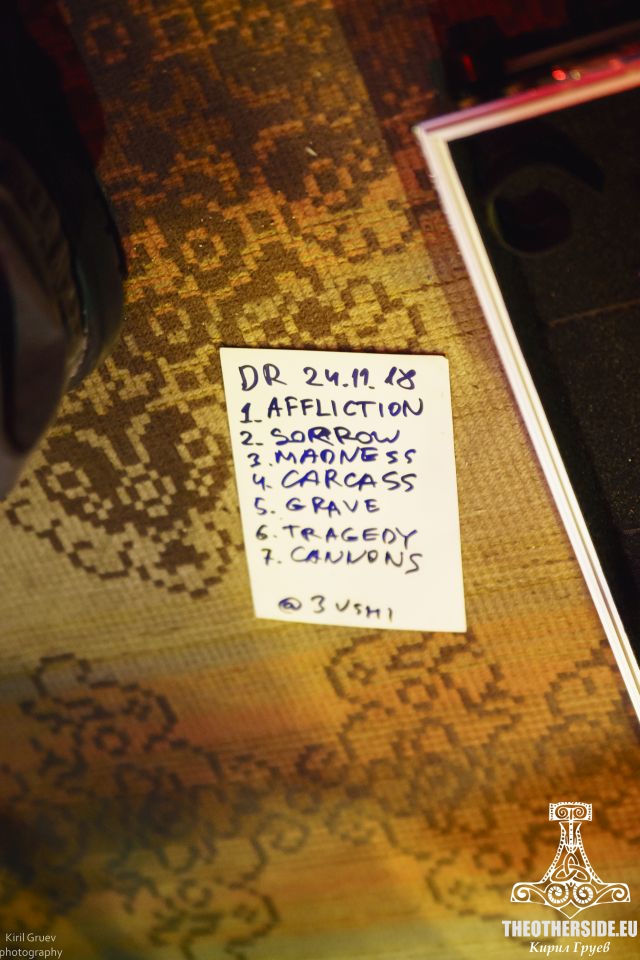 DR 24.11.18
1. AFFLICTION
2. SORROW
3. MADNESS
4. CARCASS
5. GRAVE
6. TRAGEDY
7. CANNONS
@ 3 USHI
Kiril Gruev
photography
THEOTHERSIDE.EU
Кирил Груев